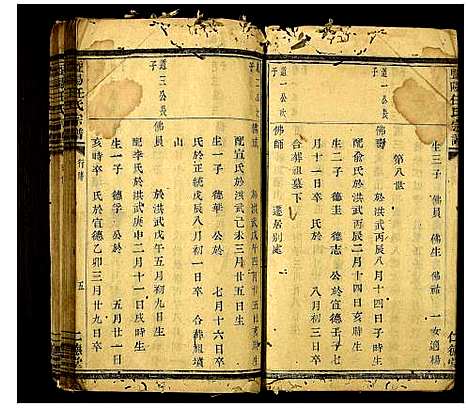 生三子 佛員 佛生 佛祐 一女適楊
第八世
道一公次子
佛壽 於洪武丙辰八月十四日子時生
配俞氏於洪武丙辰二月十四日亥時生
生二子 德圭 德志 公於宣德壬子七
月十一日卒 氏於 八月初三日卒
合葬祖墓下
佛師 遷居別處
道二公 子
佛 於洪武戊午
配宣氏於洪武己未三月初五日生
生一子 德華 公於 七月十六日卒
氏於正統戊辰八月初一日卒 合葬祖墳
山
道三公長子
佛員 於洪武戊午五月初九日生
配李氏於洪武庚申二月十一日戌時生
生一子 德孚 公於 五月廿一日
亥時卒 氏於宣德乙卯三月廿九日卒
暨陽任氏宗譜
行傳
五